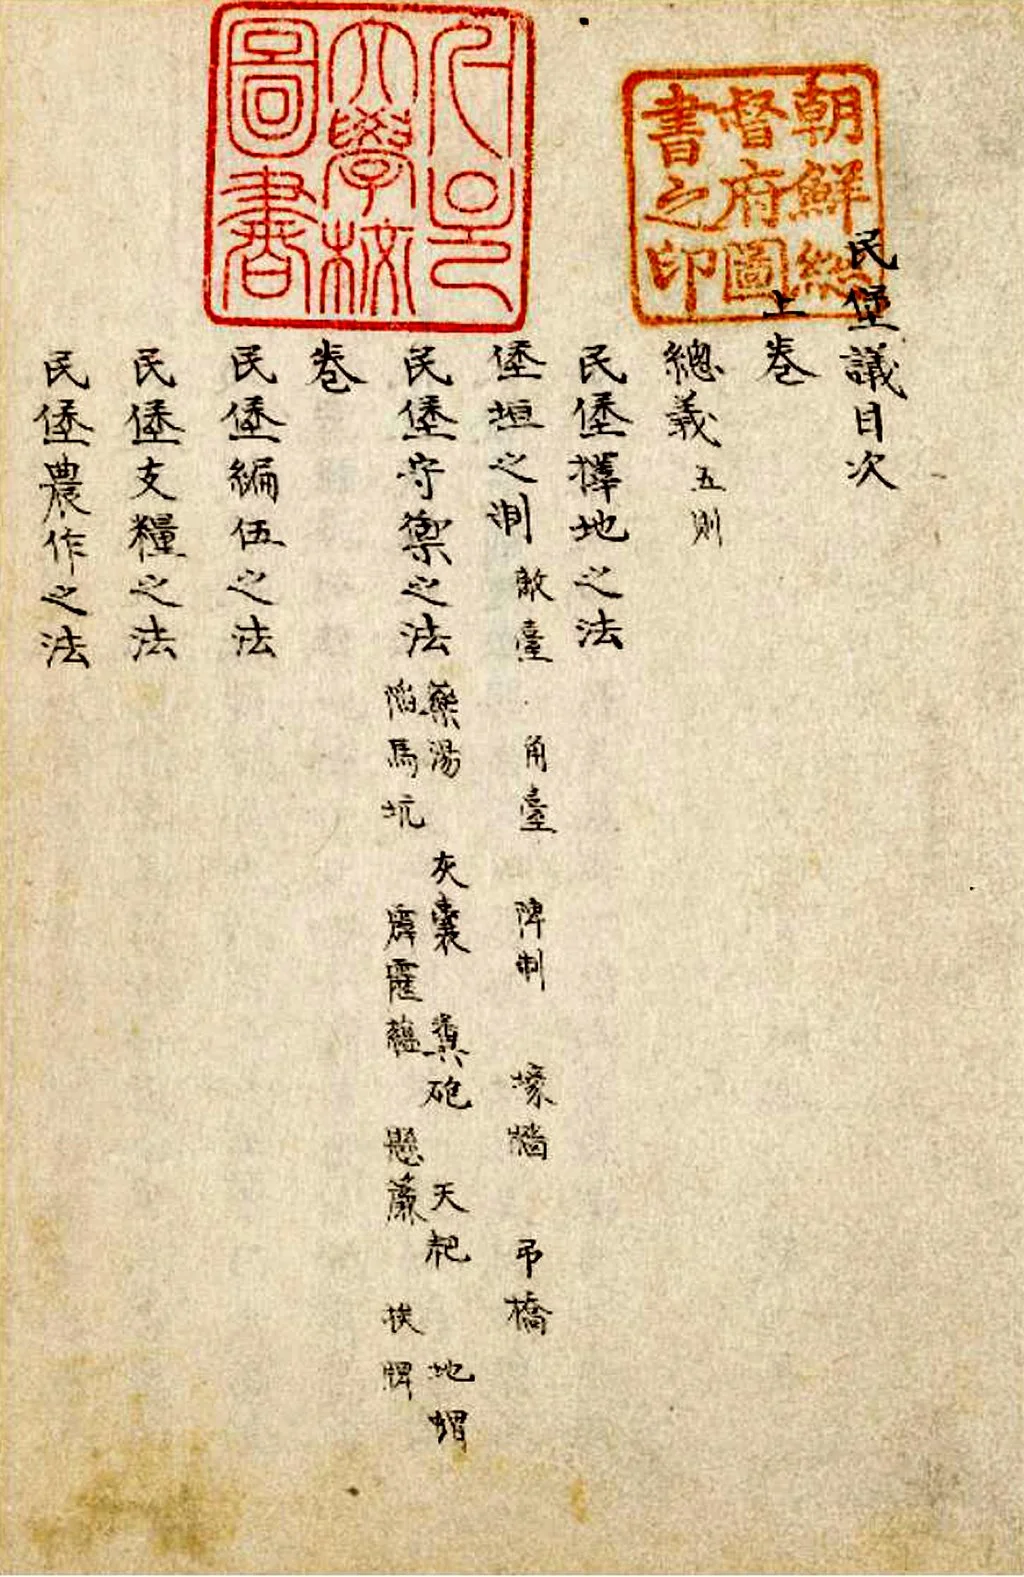 朝鮮總
督府圖
書之印
서울
大學校
圖書
民堡議目次
上卷
總義 五則
民堡擇地之法
堡垣之制 敵臺 角臺 陴制 壕墻 吊橋
民堡守禦之法 藥湯 灰囊 糞砲 天耙 地
陷馬坑 霹靂 懸簾 挨牌
卷
民堡編伍之法
民堡支糧之法
民堡農作之法